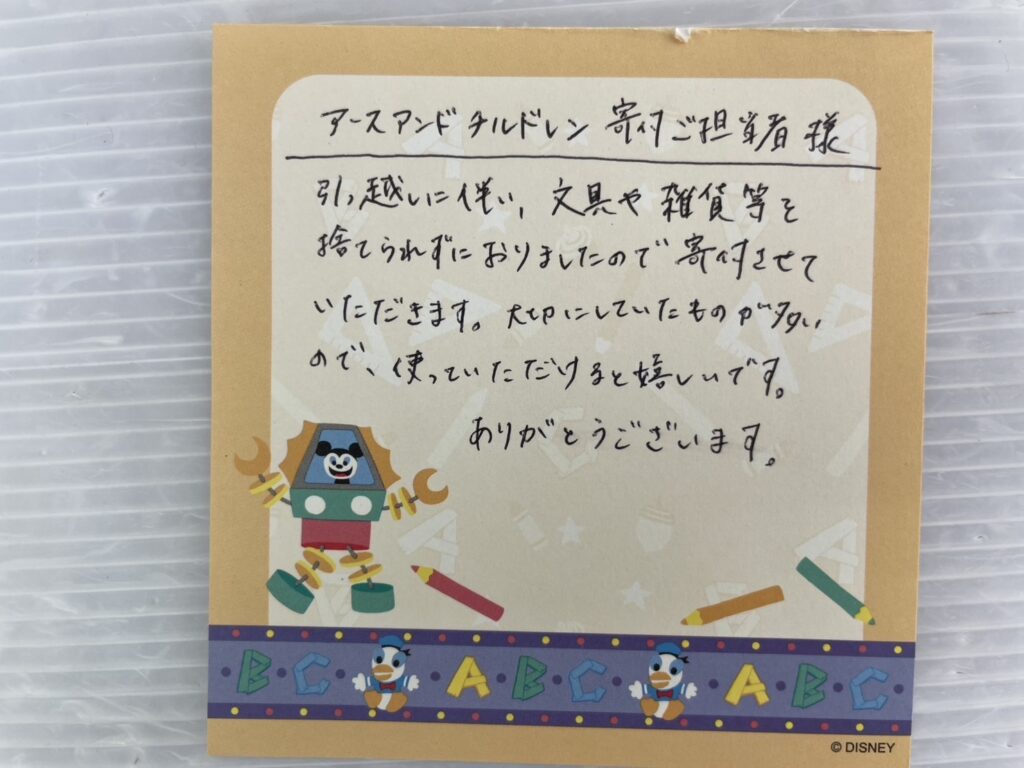 アースアンドチルドレン 寄付ご担当者 様
引っ越しに伴い、文具や雑貨等を
捨てられずにおりましたので寄付させて
いただきます。大切にしていたものが多い
ので、使っていただけると嬉しいです。
ありがとうございます。
BC ABC ABC
© DISNEY